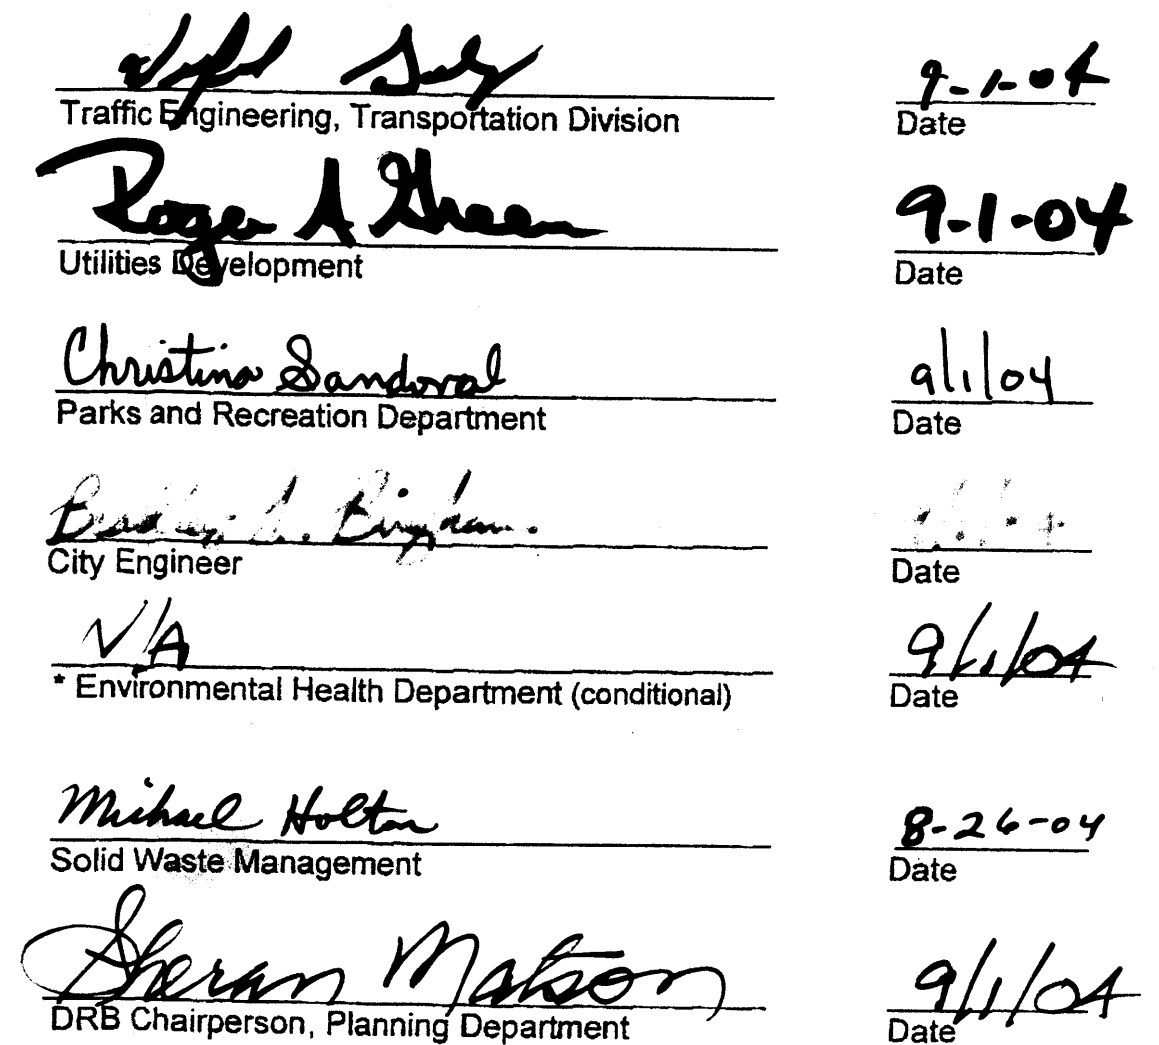 9-1-04
Traffic Engineering, Transportation Division Date
Roger A Green 9-1-04
Utilities Development Date
Christina Sandoval 9/1/04
Parks and Recreation Department Date
Bradley L. Bingham
City Engineer Date
N/A 9/1/04
* Environmental Health Department (conditional) Date
Michael Holton 8-26-04
Solid Waste Management Date
Sheran Matson 9/1/04
DRB Chairperson, Planning Department Date